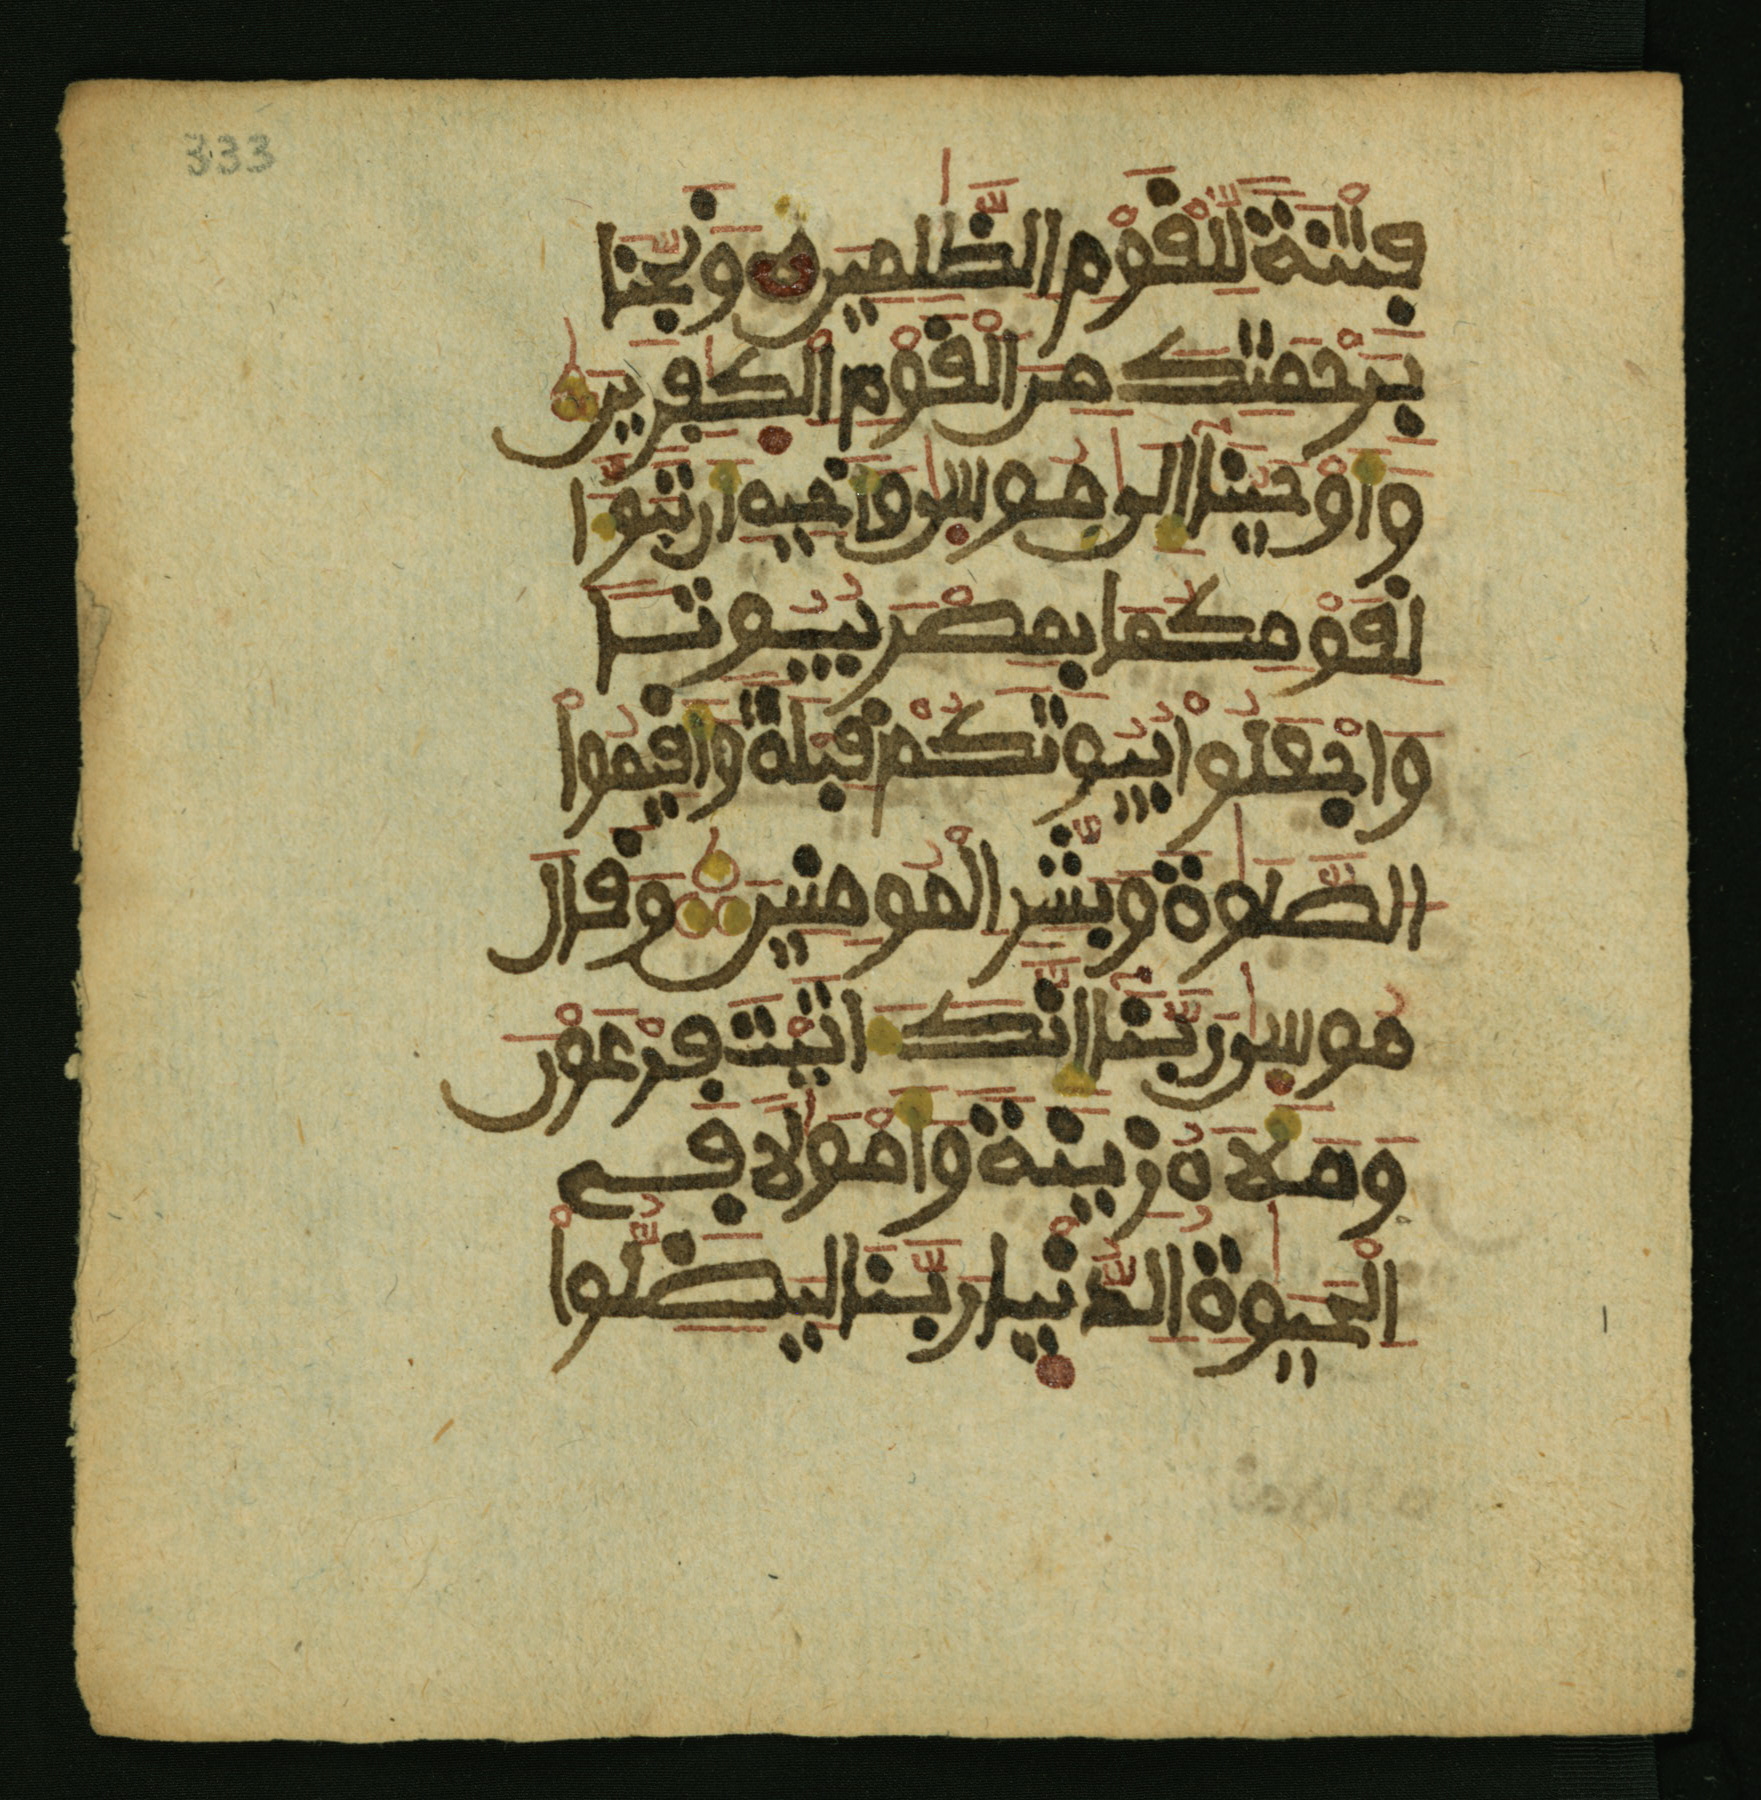 333
فِتْنَةً لِّلْقَوْمِ الظَّٰلِمِينَ وَنَجِّنَا
بِرَحْمَتِكَ مِنَ الْقَوْمِ الْكَٰفِرِينَ
وَأَوْحَيْنَآ إِلَىٰ مُوسَىٰ وَأَخِيهِ أَن تَبَوَّءَا
لِقَوْمِكُمَا بِمِصْرَ بُيُوتًا
وَاجْعَلُوا بُيُوتَكُمْ قِبْلَةً وَأَقِيمُوا
الصَّلَوٰةَ وَبَشِّرِ الْمُومِنِينَ وَقَالَ
مُوسَىٰ رَبَّنَآ إِنَّكَ ءَاتَيْتَ فِرْعَوْنَ
وَمَلَأَهُ زِينَةً وَأَمْوَٰلًا فِي
الْحَيَوٰةِ الدُّنْيَا رَبَّنَا لِيَضِلُّوا